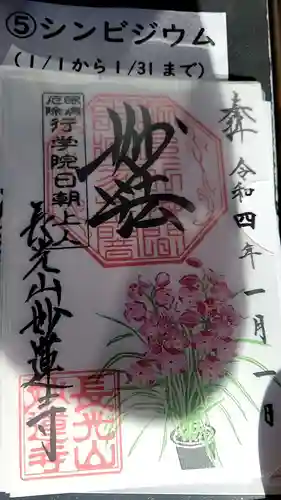 ⑤シンビジウム
（1/1から1/31まで）
奉拝
令和四年一月一日
妙法
眼病
厄除
行学院日朝上人
長光山妙蓮寺
長光山
妙蓮寺